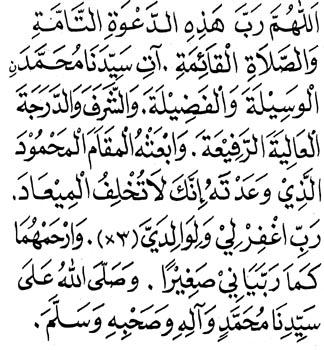 اَللّٰهُمَّ رَبَّ هَذِهِ الدَّعْوَةِ التَّامَّةِ
وَالصَّلَاةِ الْقَائِمَةِ . آتِ سَيِّدَنَا مُحَمَّدَنِ
الْوَسِيْلَةَ وَالْفَضِيْلَةَ . وَالشَّرَفَ وَالدَّرَجَةَ
الْعَالِيَةَ الرَّفِيْعَةَ . وَابْعَثْهُ الْمَقَامَ الْمَحْمُوْدَ
الَّذِيْ وَعَدْتَهُ إِنَّكَ لَا تُخْلِفُ الْمِيْعَادَ .
رَبِّ اغْفِرْ لِيْ وَلِوَالِدَيَّ (٣×) . وَارْحَمْهُمَا
كَمَا رَبَّيَانِيْ صَغِيْرًا . وَصَلَّى اللهُ عَلَى
سَيِّدِنَا مُحَمَّدٍ وَآلِهِ وَصَحْبِهِ وَسَلَّمَ .